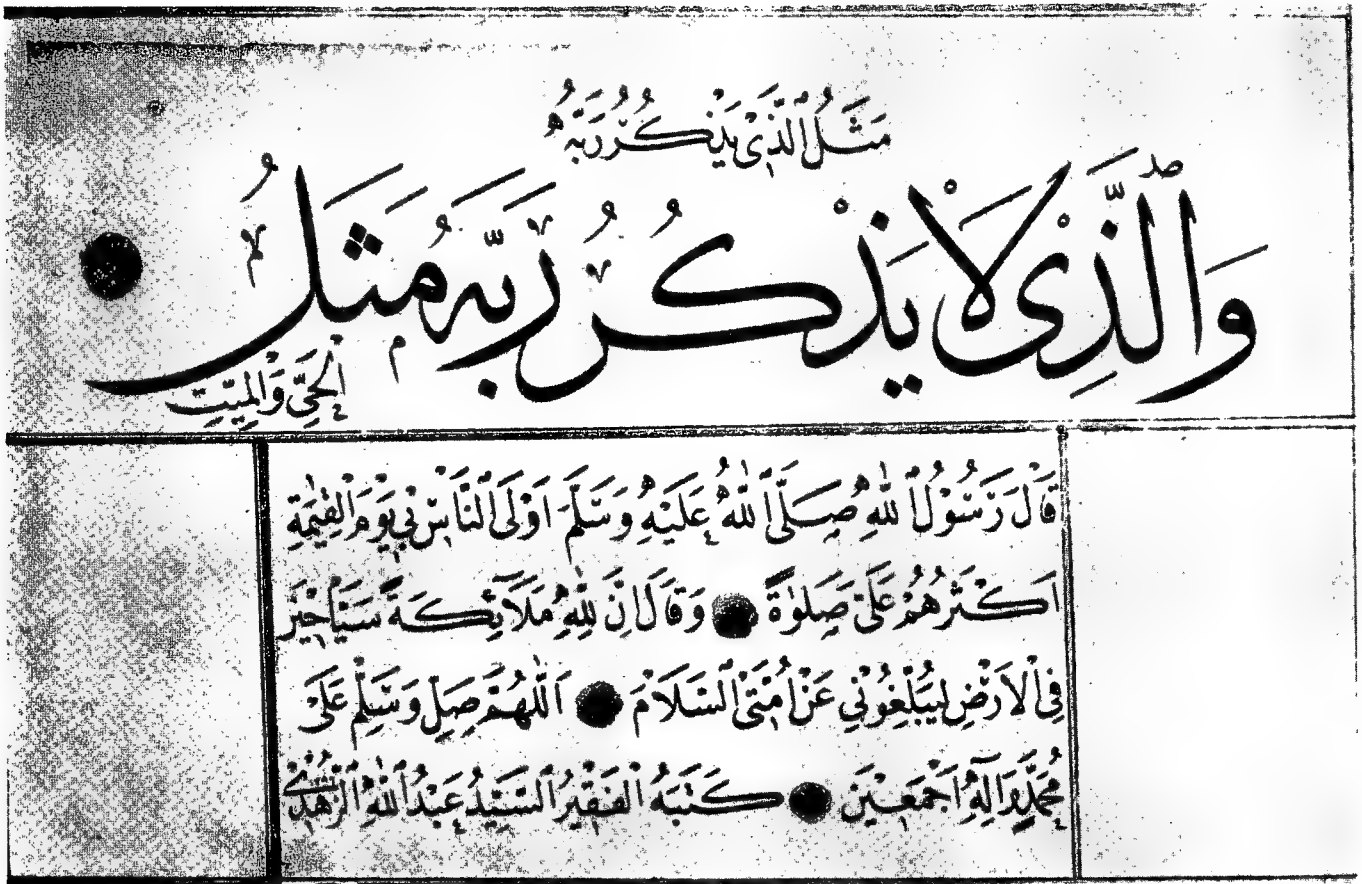 مَثَلُ الَّذِي يَذْكُرُ رَبَّهُ
وَالَّذِي لَا يَذْكُرُ رَبَّهُ مَثَلُ
الْحَيِّ وَالْمَيِّتِ
قَالَ رَسُولُ اللّٰهِ صَلَّى اللّٰهُ عَلَيْهِ وَسَلَّمَ اَوْلَى النَّاسِ بِي يَوْمَ الْقِيٰمَةِ
اَكْثَرُهُمْ عَلَيَّ صَلٰوةً وَقَالَ اِنَّ لِلّٰهِ مَلَائِكَةً سَيَّاحِينَ
فِي الْاَرْضِ لِيُبَلِّغُونِي عَنْ اُمَّتِي السَّلَامَ اَللّٰهُمَّ صَلِّ وَسَلِّمْ عَلَى
مُحَمَّدٍ وَاٰلِهِ اَجْمَعِينَ كَتَبَهُ الْفَقِيرُ السَّيِّدُ عَبْدُ اللّٰهِ الزُّهْدِي